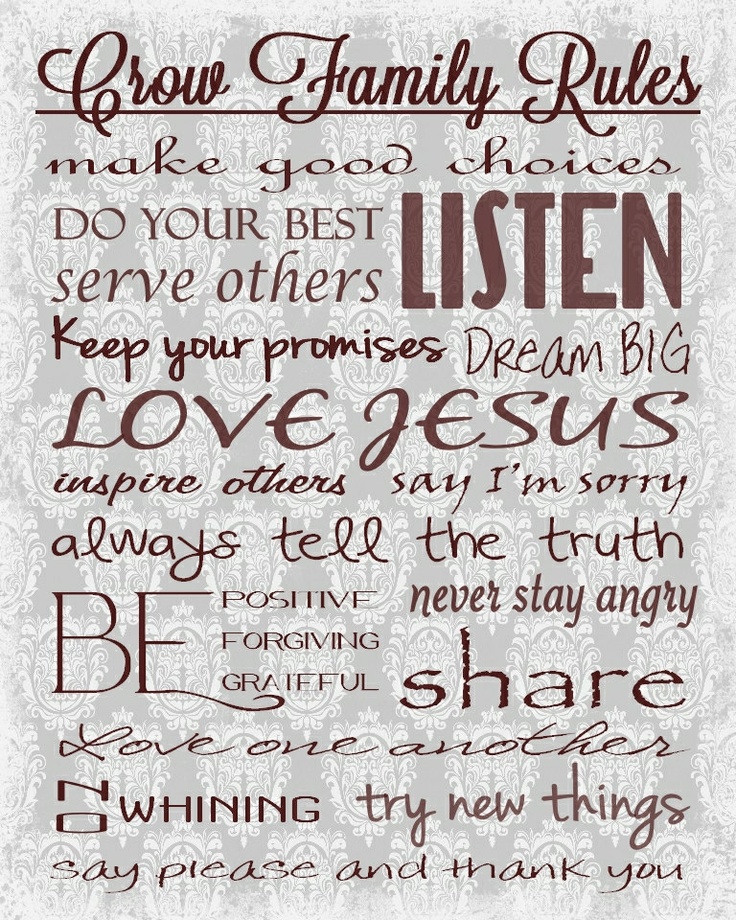 Crow Family Rules
make good choices
DO YOUR BEST
serve others
LISTEN
Keep your promises
DREAM BIG
LOVE JESUS
inspire others
say I'm sorry
always tell the truth
BE
POSITIVE
FORGIVING
GRATEFUL
never stay angry
share
Love one another
NO WHINING
try new things
say please and thank you